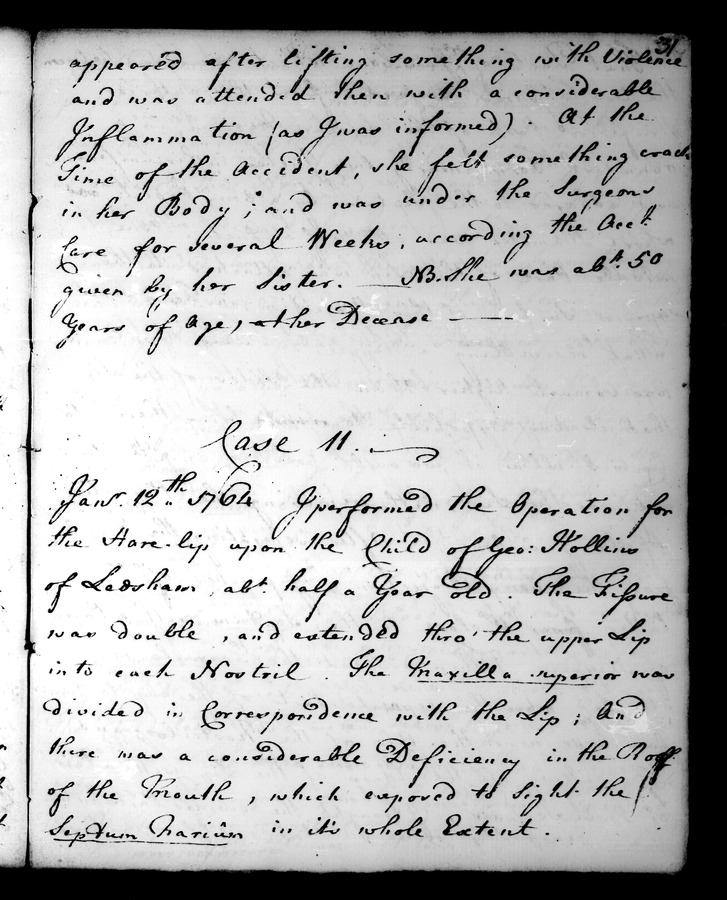 31
appeared after lifting something with Violence
and was attended then with a considerable
Inflammation (as I was informed). At the
Time of the Accident, she felt something crack
in her Body; and was under the Surgeons
Care for several Weeks, according the Acct.
given by her Sister. — NB. She was abt. 50
Years of Age, at her Decease —
Case 11.
Jany. 12th. 1764 I performed the Operation for
the Hare-lip upon the Child of Geo: Hollins
of Ledsham, abt. half a Year old. The Fissure
was double, and extended thro' the upper Lip
into each Nostril. The Maxilla superior was
divided in Correspondence with the Lip; And
there was a considerable Deficiency in the Roof
of the Mouth, which exposed to sight the
Septum Nariûm in it's whole Extent.